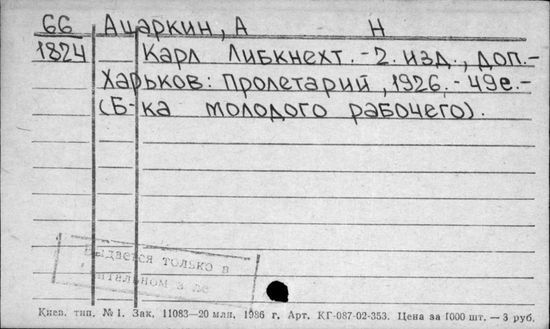 66 Ацаркин, А Н
1824 Карл Либкнехт. - 2. изд., доп.-
Харьков: Пролетарий, 1926. - 49с.-
(Б-ка молодого рабочего).
Выдается только в
читальном з ле
Киев. тип. №1. Зак. 11083—20 млн, 1986 г. Арт. КГ-087-02-353. Цена за 1000 шт. — 3 руб.